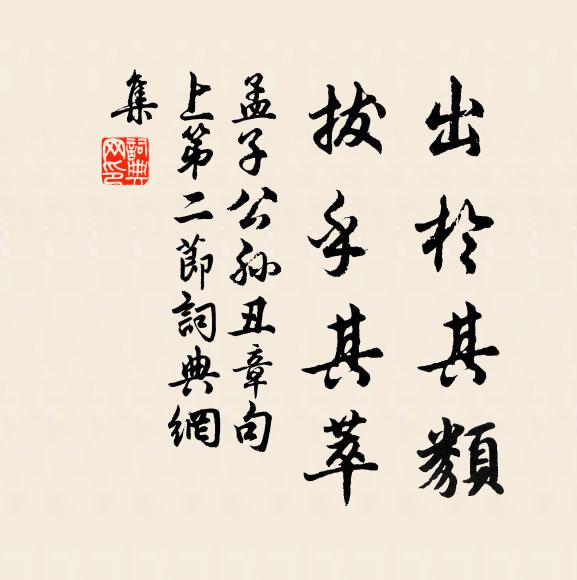 出於其類
拔乎其萃
孟子公孙丑章句
上第二節詞典網
集
詞典
网印